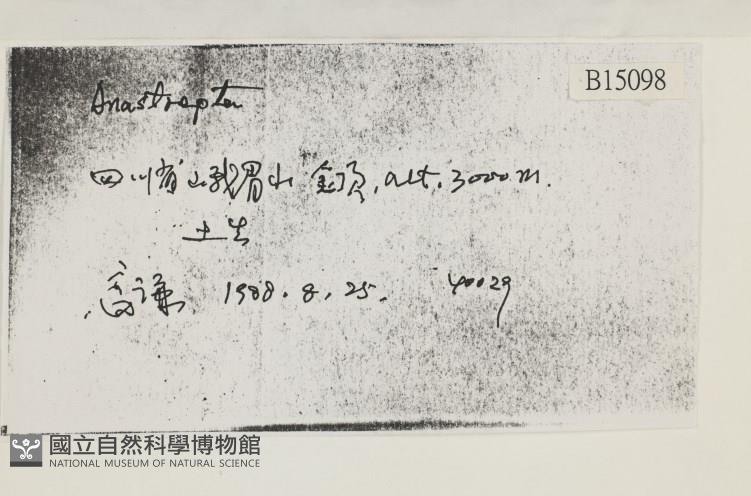 B15098
Anastrepta
四川省峨眉山 金顶, alt. 3000 m.
土生
高谦 1988. 8. 25. 40029
國立自然科學博物館
NATIONAL MUSEUM OF NATURAL SCIENCE